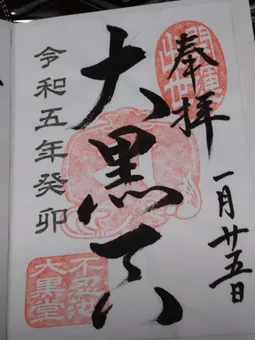 奉拝
開運
出世
一月廿五日
大黒天
令和五年癸卯
不忍池
大黒堂